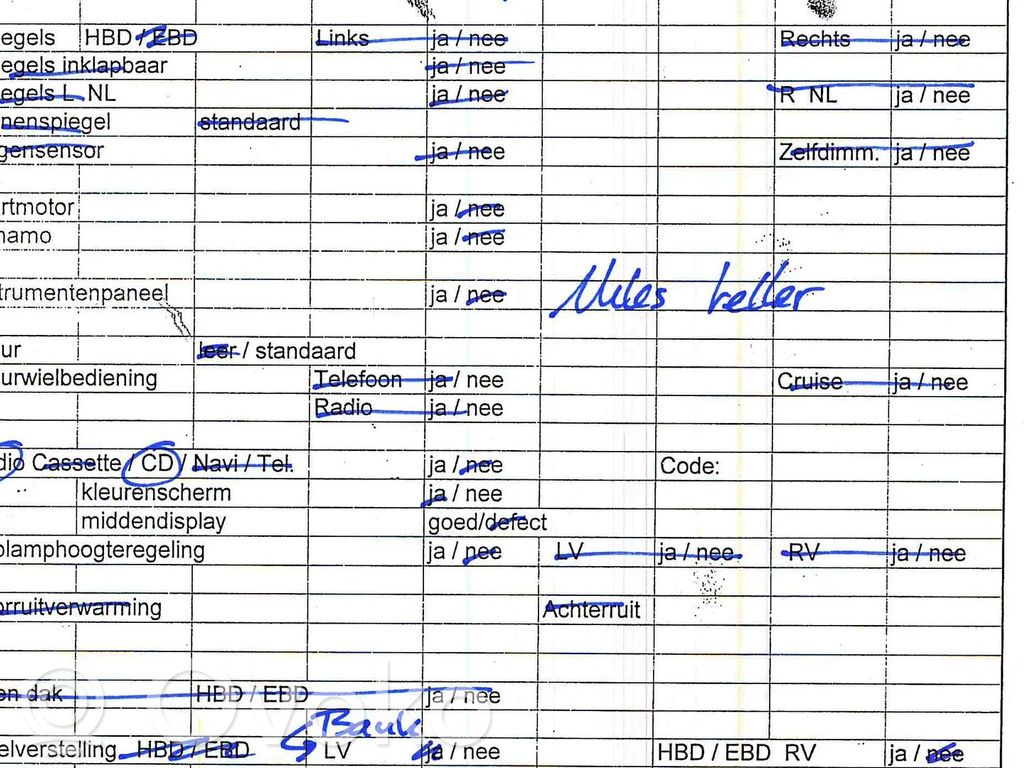 egels HBD / EBD Links ja / nee Rechts ja / nee
egels inklapbaar ja / nee
egels L NL ja / nee R NL ja / nee
nenspiegel standaard
gensensor ja / nee Zelfdimm. ja / nee
rtmotor ja / nee
namo ja / nee
trumentenpaneel ja / nee
ur leer / standaard
urwielbediening Telefoon ja / nee Cruise ja / nee
Radio ja / nee
dio Cassette / CD / Navi / Tel. ja / nee Code:
kleurenscherm ja / nee
middendisplay goed/defect
plamphoogteregeling ja / nee LV ja / nee RV ja / nee
orruitverwarming Achterruit
en dak HBD / EBD ja / nee
Bank
elverstelling HBD / EBD LV ja / nee HBD / EBD RV ja / nee